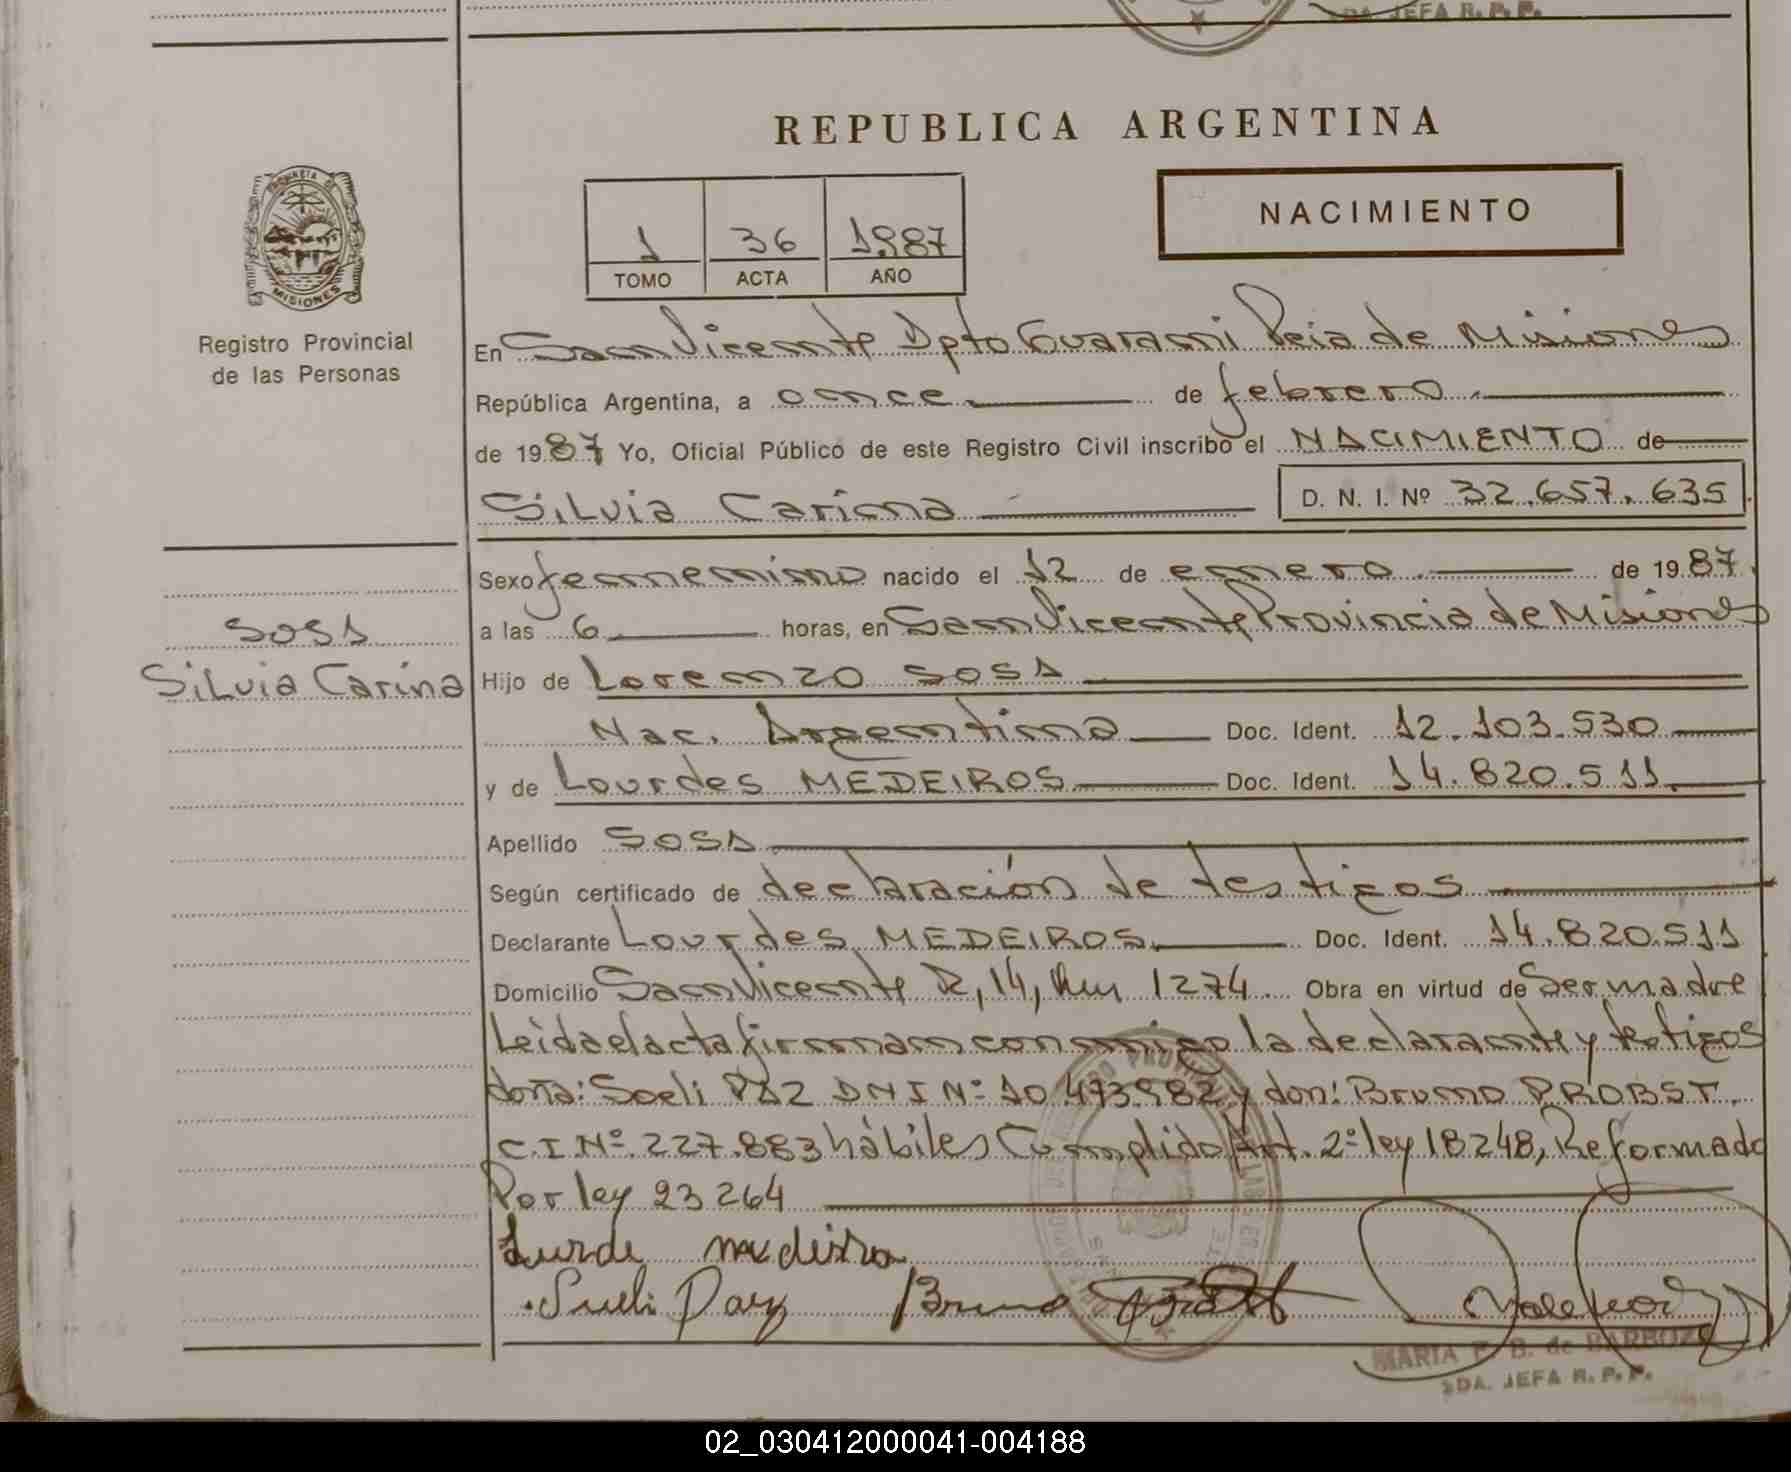 SDA. JEFA R. P. P.
REPUBLICA ARGENTINA
NACIMIENTO
1 36 1987
TOMO ACTA AÑO
PROVINCIA DE
MISIONES
Registro Provincial
de las Personas
En San Vicente Dpto Guarani Pcia de Misiones
República Argentina, a once de febrero
de 1987 Yo, Oficial Público de este Registro Civil inscribo el NACIMIENTO de
Silvia Carina D. N. I. Nº 32.657.635
Sexo femenino nacido el 12 de enero de 1987.
a las 6 horas, en San Vicente Provincia de Misiones
SOSA
Silvia Carina
Hijo de Lorenzo SOSA
Nac. Argentina Doc. Ident. 12.103.530
y de Lourdes MEDEIROS Doc. Ident. 14.820.511.
Apellido SOSA
Según certificado de declaración de testigos
Declarante Lourdes MEDEIROS. Doc. Ident. 14.820.511
Domicilio San Vicente R, 14, Km 1274 Obra en virtud de Ser madre
Leida el acta firman conmigo la declarante y testigos
doña: Soeli PAZ DNI Nº 10.473.982 y don: Bruno PROBST.
C.I.Nº. 227.883 hábiles Cumplido Art. 2º ley 18248, Reformado
Por ley 23 264
Lurde medeiro
Sueli Paz Bruno
MARIA F. B. de BARBOZA
SDA. JEFA R. P. P.
02_030412000041-004188